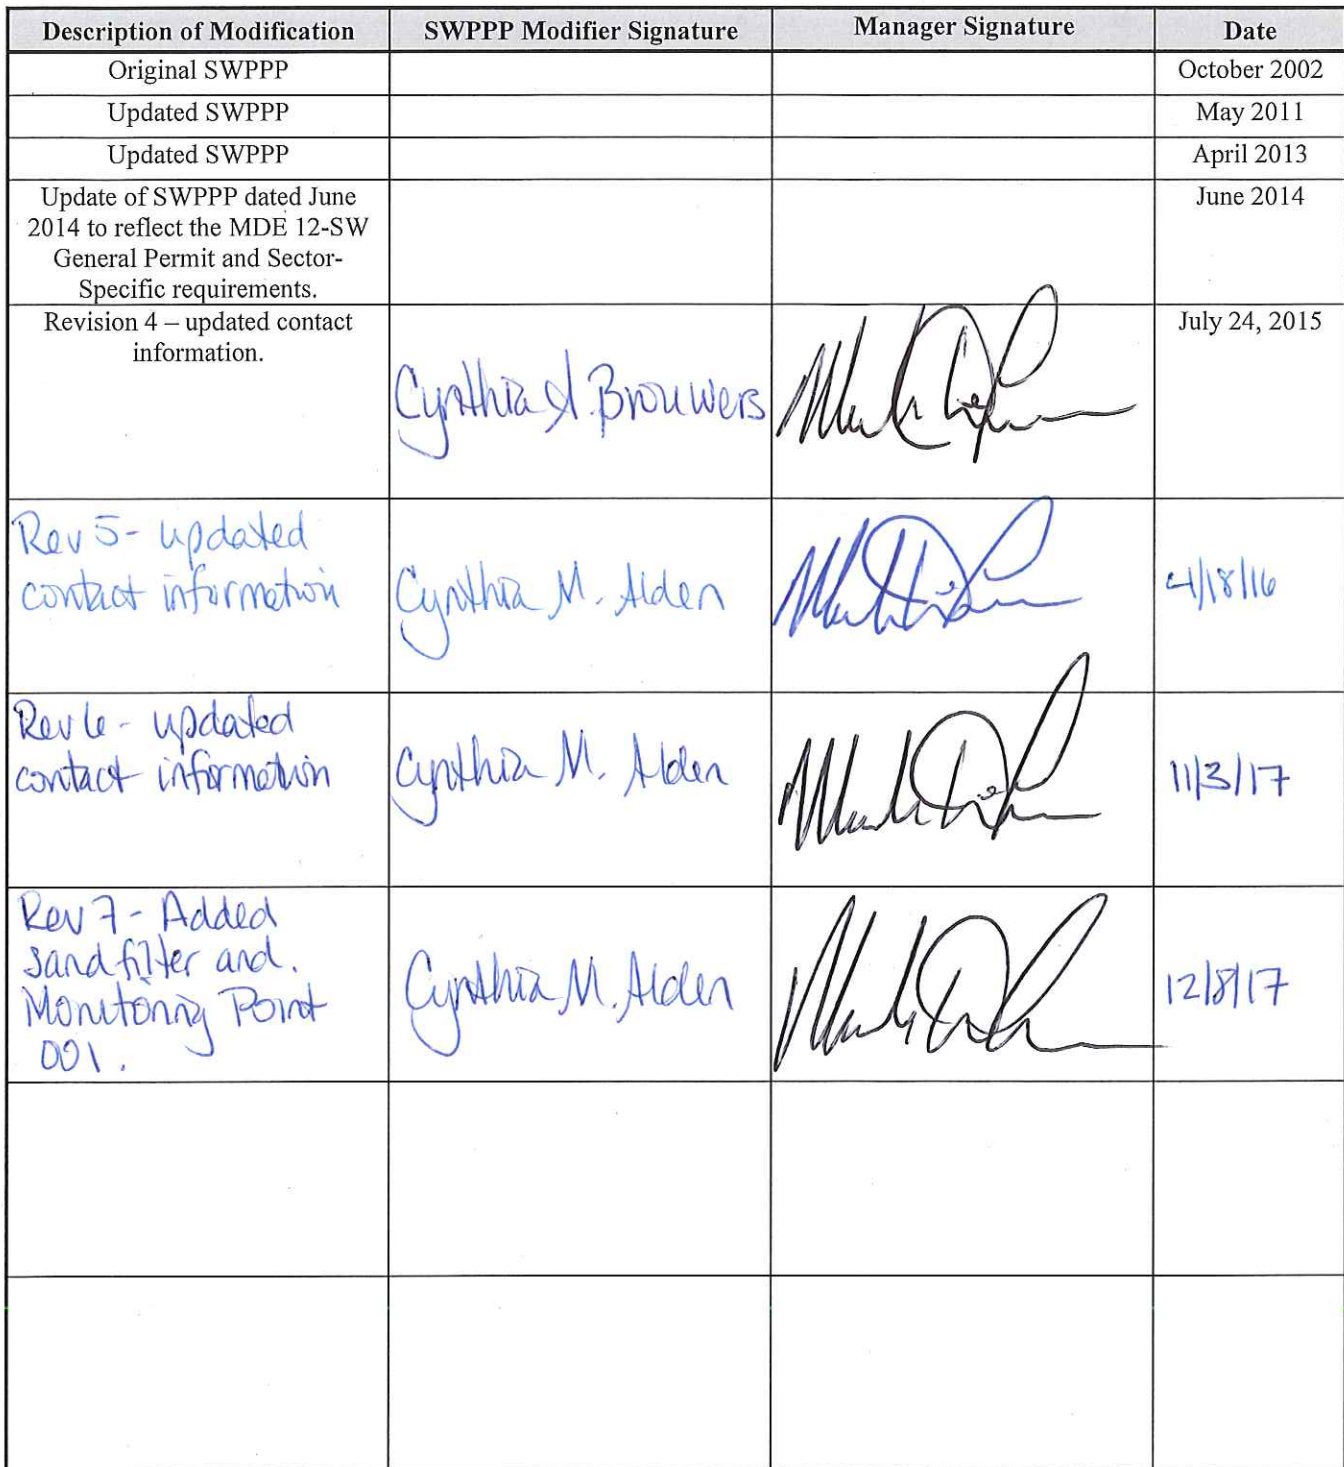 Description of Modification SWPPP Modifier Signature Manager Signature Date
Original SWPPP October 2002
Updated SWPPP May 2011
Updated SWPPP April 2013
Update of SWPPP dated June June 2014
2014 to reflect the MDE 12-SW
General Permit and Sector-
Specific requirements.
Revision 4 – updated contact July 24, 2015
information.
Cynthia A. Brouwers
Rev 5- updated
contact information Cynthia M. Alden 4/18/16
Rev 6- updated
contact information Cynthia M. Alden 11/3/17
Rev 7- Added
sand filter and. Cynthia M. Alden 12/8/17
Monitoring Point
001.